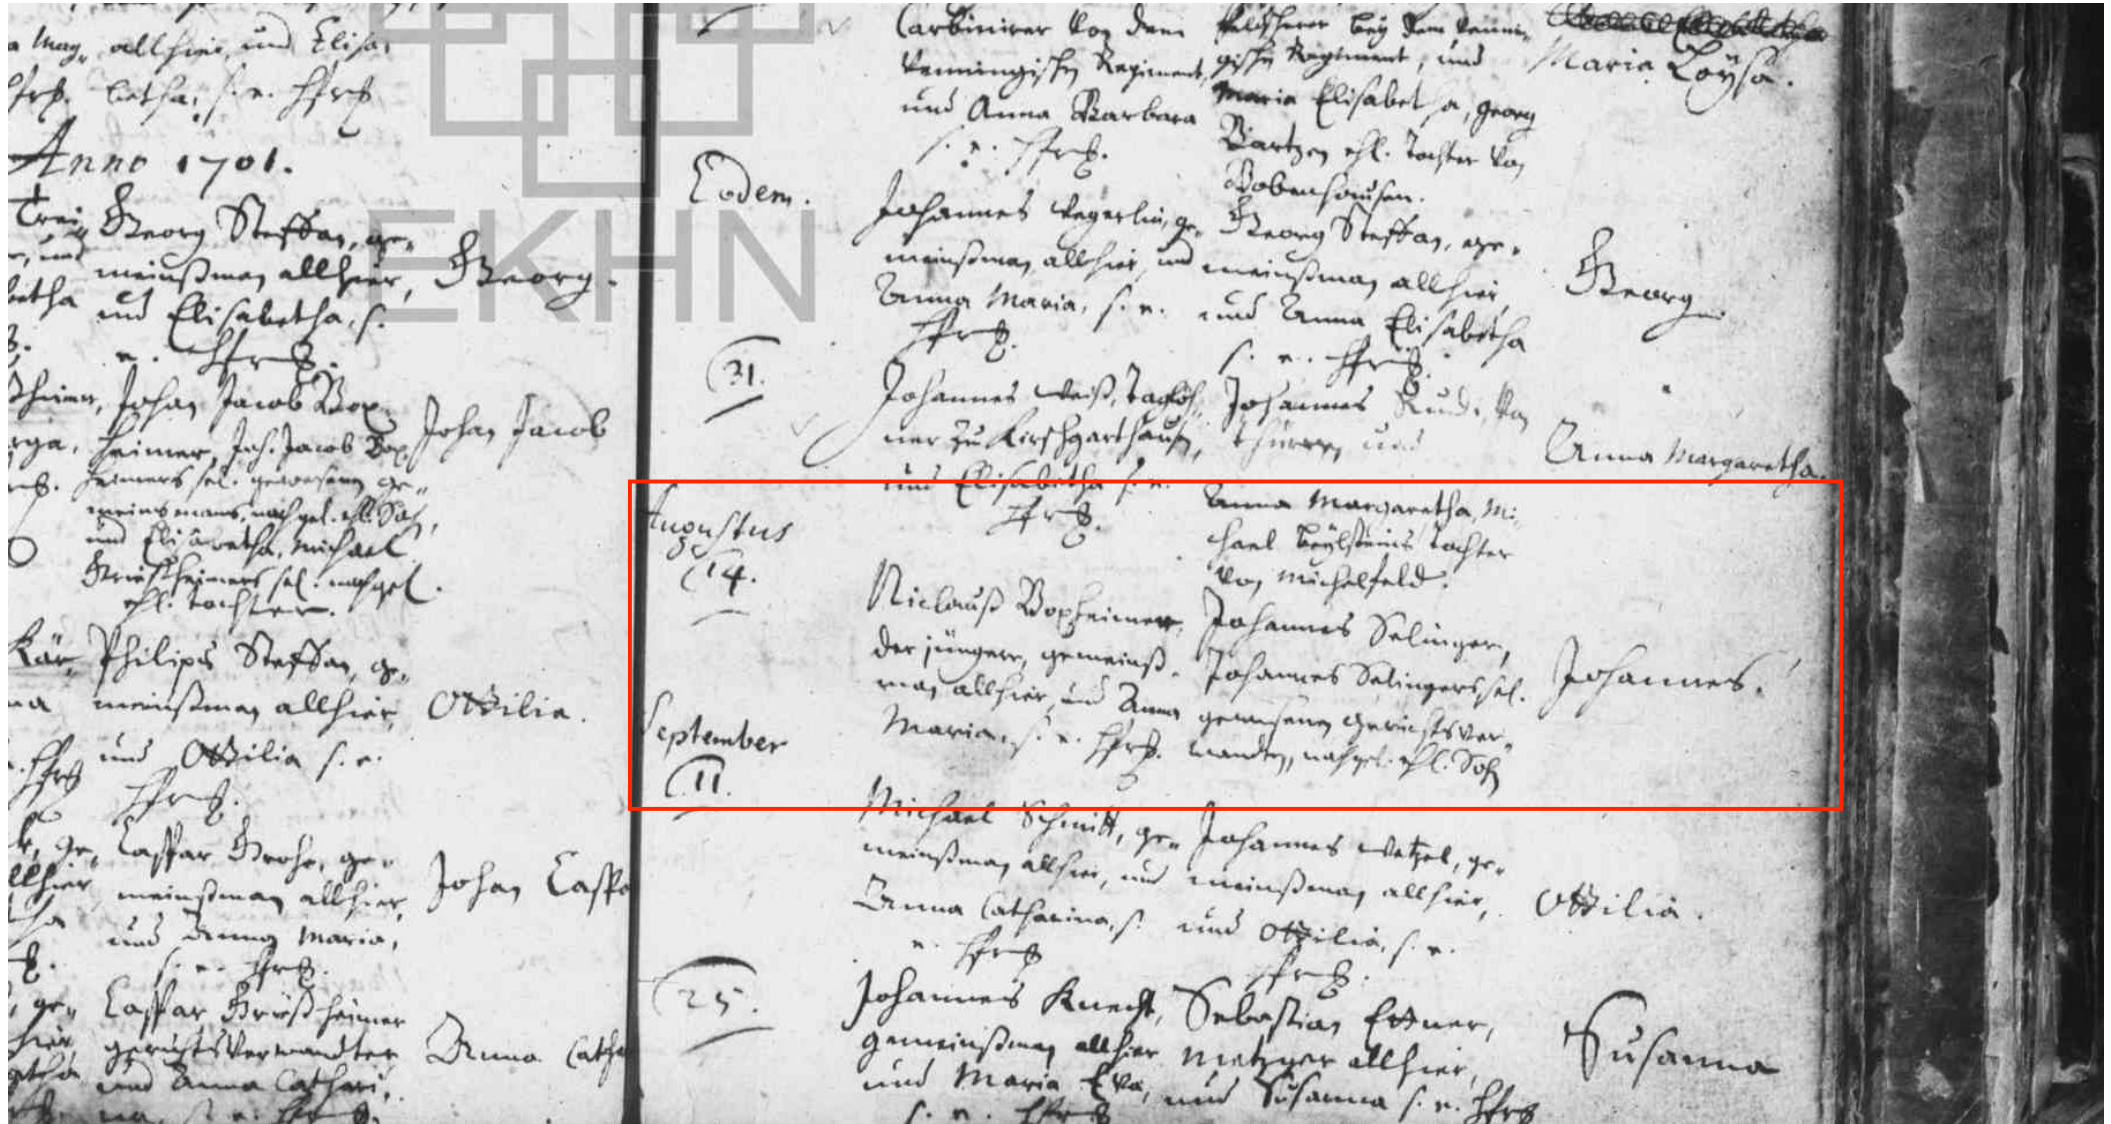 a Mag. allhier, und Elisa,
hfrß. betha, s. e. hfrß
Anno 1701.
Georg Steffan, ge,,
meinßman allhier, Georg.
betha und Elisabetha, s.
e. hfrß.
heimer, Johan Jacob Box, Johan Jacob
heimer, Joh. Jacob Box
heimers sel. gewesenen ge,,
meinsmans, nachgel. ehl. Sohn,
und Elisabetha, Michael
Grießheimers sel. nachgel.
ehl. tochter.
Kär, Philips Steffan, ge,
na meinßman allhier, Ottilia.
hfrß und Ottilia s. e.
hfrß.
Caspar Grohe, ge,,
meinßman allhier, Johan Caspa
und Anna Maria,
s. e. hfrß.
Caspar Grießheimer
gerichtsverwandter Anna Catha
und Anna Cathari,
na, s. e. hfrß.
Carbinirer von dem
Venningischen Regiment,
und Anna Barbara
s. e. hfrß.
Feldscherer bey dem Venni,
gischen Regiment, und
Maria Elisabetha, Georg
Bartzen ehl. tochter von
Bobenhausen.
Maria Loysa.
Eodem.
Johannes Wegerlin, ge,
meinßman allhier, und
Anna Maria, s. e.
hfrß.
Georg Steffan, ge,,
meinßman allhier,
und Anna Elisabetha
s. e. hfrß.
Georg.
31.
Johannes Weiß, Taglöh,,
ner zu Kirschgarthausen,
und Elisabetha s. e.
hfrß.
Johannes Rudi, von
und
Anna Margaretha, Mi,
chael Beylsteins tochter
von Michelfeld.
Anna Margaretha.
Augustus
14.
Niclauß Boxheimer,
der jüngere, gemeinß,
man allhier, und Anna
Maria, s. e. hfrß.
Johannes Selinger,
Johannes Selingers sel.
gewesenen gerichtsver,,
wandten, nachgel. ehl. Sohn
Johannes.
September
11.
Michael Schmitt, ge,,
meinßman allhier, und
Anna Catharina, s.
e. hfrß
Johannes Wetzel, ge,,
meinßman allhier,
und Ottilia, s. e.
hfrß.
Ottilia.
25.
Johannes Knecht,
gemeinßman allhier
und Maria Eva,
s. e. hfrß
Sebastian Ettner,
Metzger allhier,
und Susanna s. e. hfrß
Susanna
EKHN